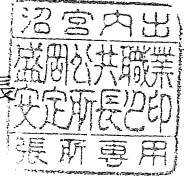 沼宮内出
盛岡公共職業
安定所長之印
張所専用